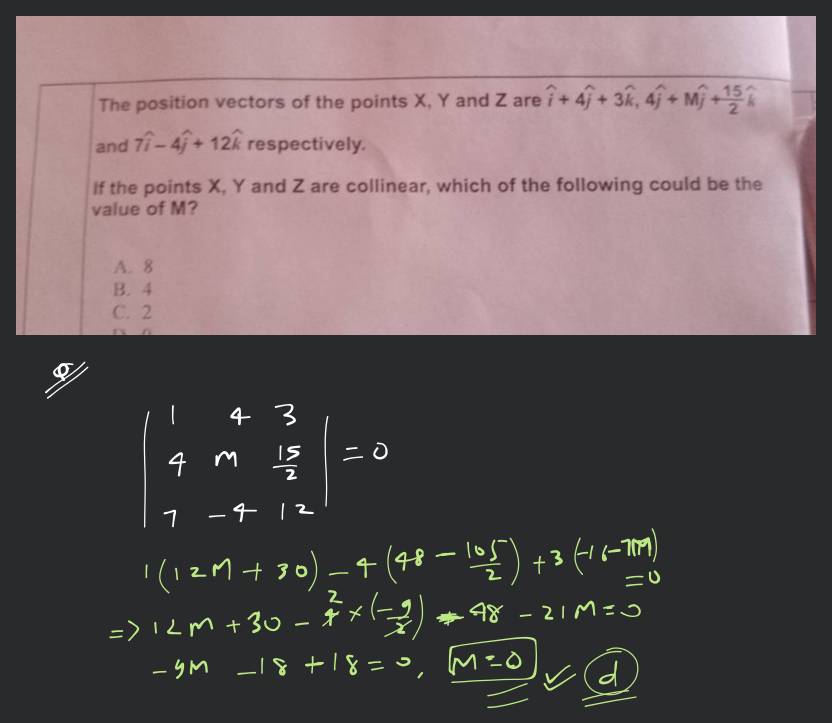 The position vectors of the points X, Y and Z are î + 4ĵ + 3k̂, 4ĵ + Mĵ + 15/2 k̂
and 7î – 4ĵ + 12k̂ respectively.
If the points X, Y and Z are collinear, which of the following could be the
value of M?
A. 8
B. 4
C. 2
D. 0
Q
| 1 4 3 |
| 4 m 15/2 | = 0
| 7 -4 12 |
1(12M + 30) - 4(48 - 105/2) + 3(-16-7M) = 0
=> 12M + 30 - 4 2 × (-9/2) - 48 - 21M = 0
-9M -18 + 18 = 0, M = 0 ✓ d